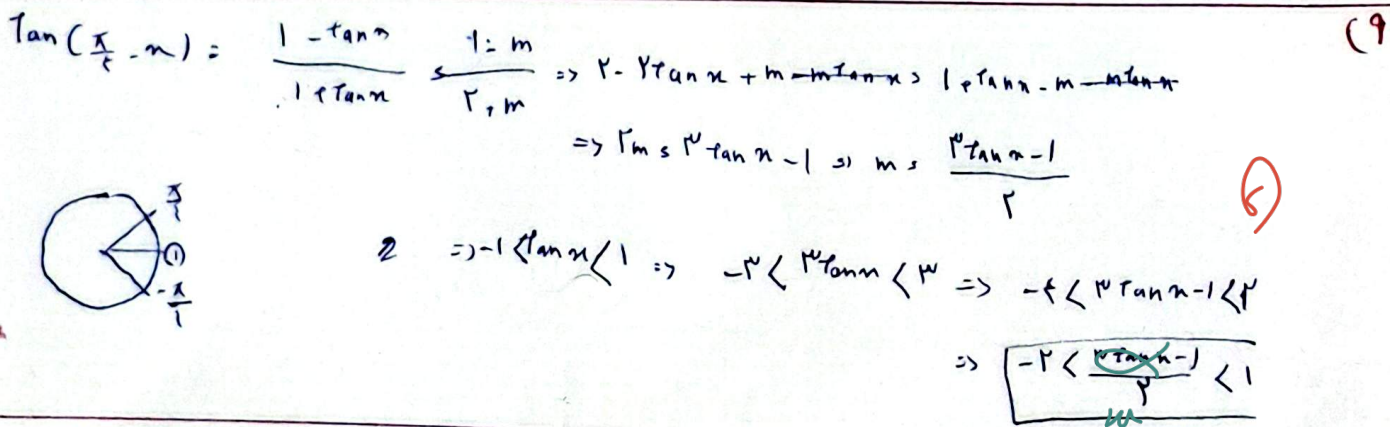 (۹
tan(π/۴ - x) = (1 - tan x)/(1 + tan x) = (1 - m)/(۲ + m) => ۲ - ۲tan x + m - m tan x = 1 + tan x - m - m tan x
=> ۲m = ۳ tan x - 1 => m = (۳ tan x - 1)/۲
=> -1 < tan x < 1 => -۳ < ۳ tan x < ۳ => -۴ < ۳ tan x - 1 < ۲
=> -۲ < (۳ tan x - 1)/۲ < 1
m